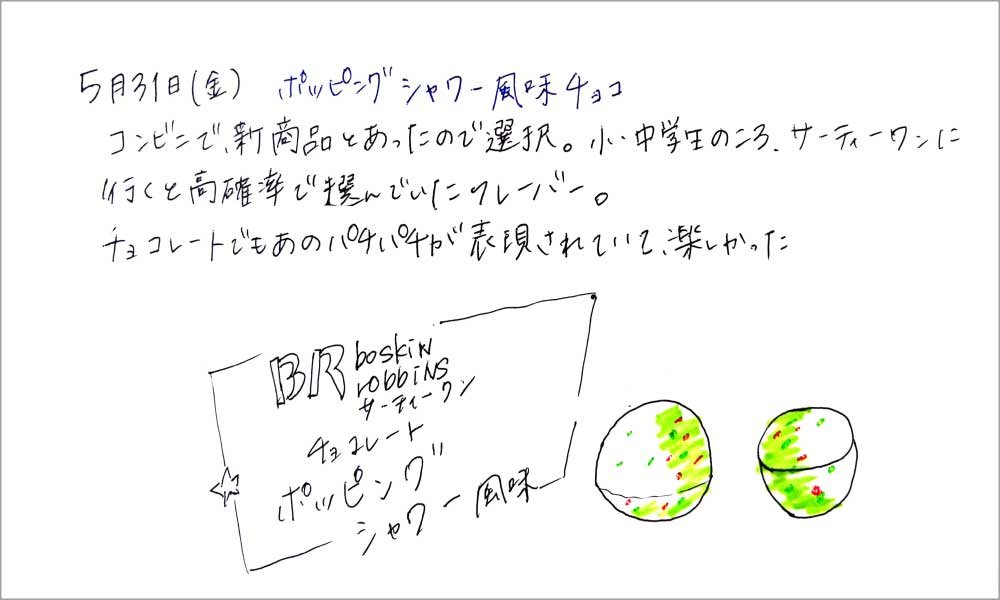 5月31日(金) ポッピングシャワー風味チョコ
コンビニで、新商品とあったので選択。小・中学生のころ、サーティーワンに
行くと高確率で選んでいたフレーバー。
チョコレートでもあのパチパチが表現されていて、楽しかった
BR boskin
robbins
サーティーワン
チョコレート
ポッピング
シャワー風味